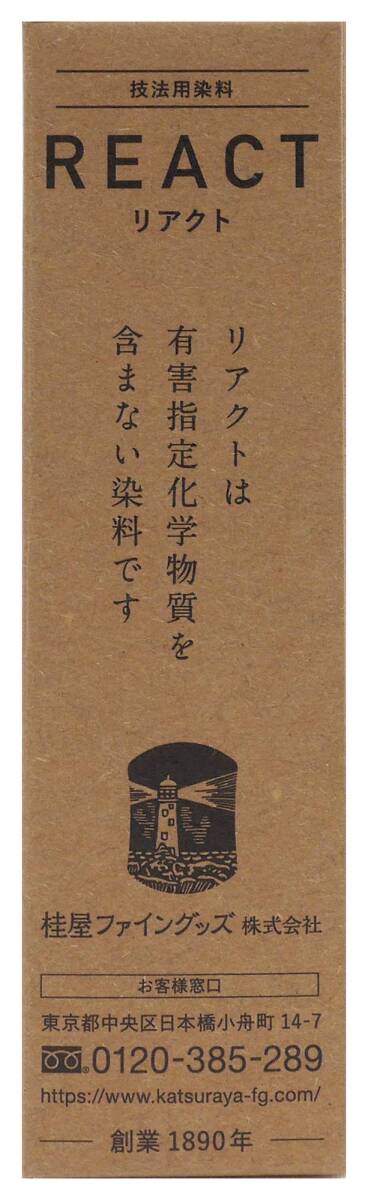 技法用染料
REACT
リアクト
リアクトは
有害指定化学物質を
含まない染料です
桂屋ファイングッズ 株式会社
お客様窓口
東京都中央区日本橋小舟町 14-7
0120-385-289
https://www.katsuraya-fg.com/
創業 1890年